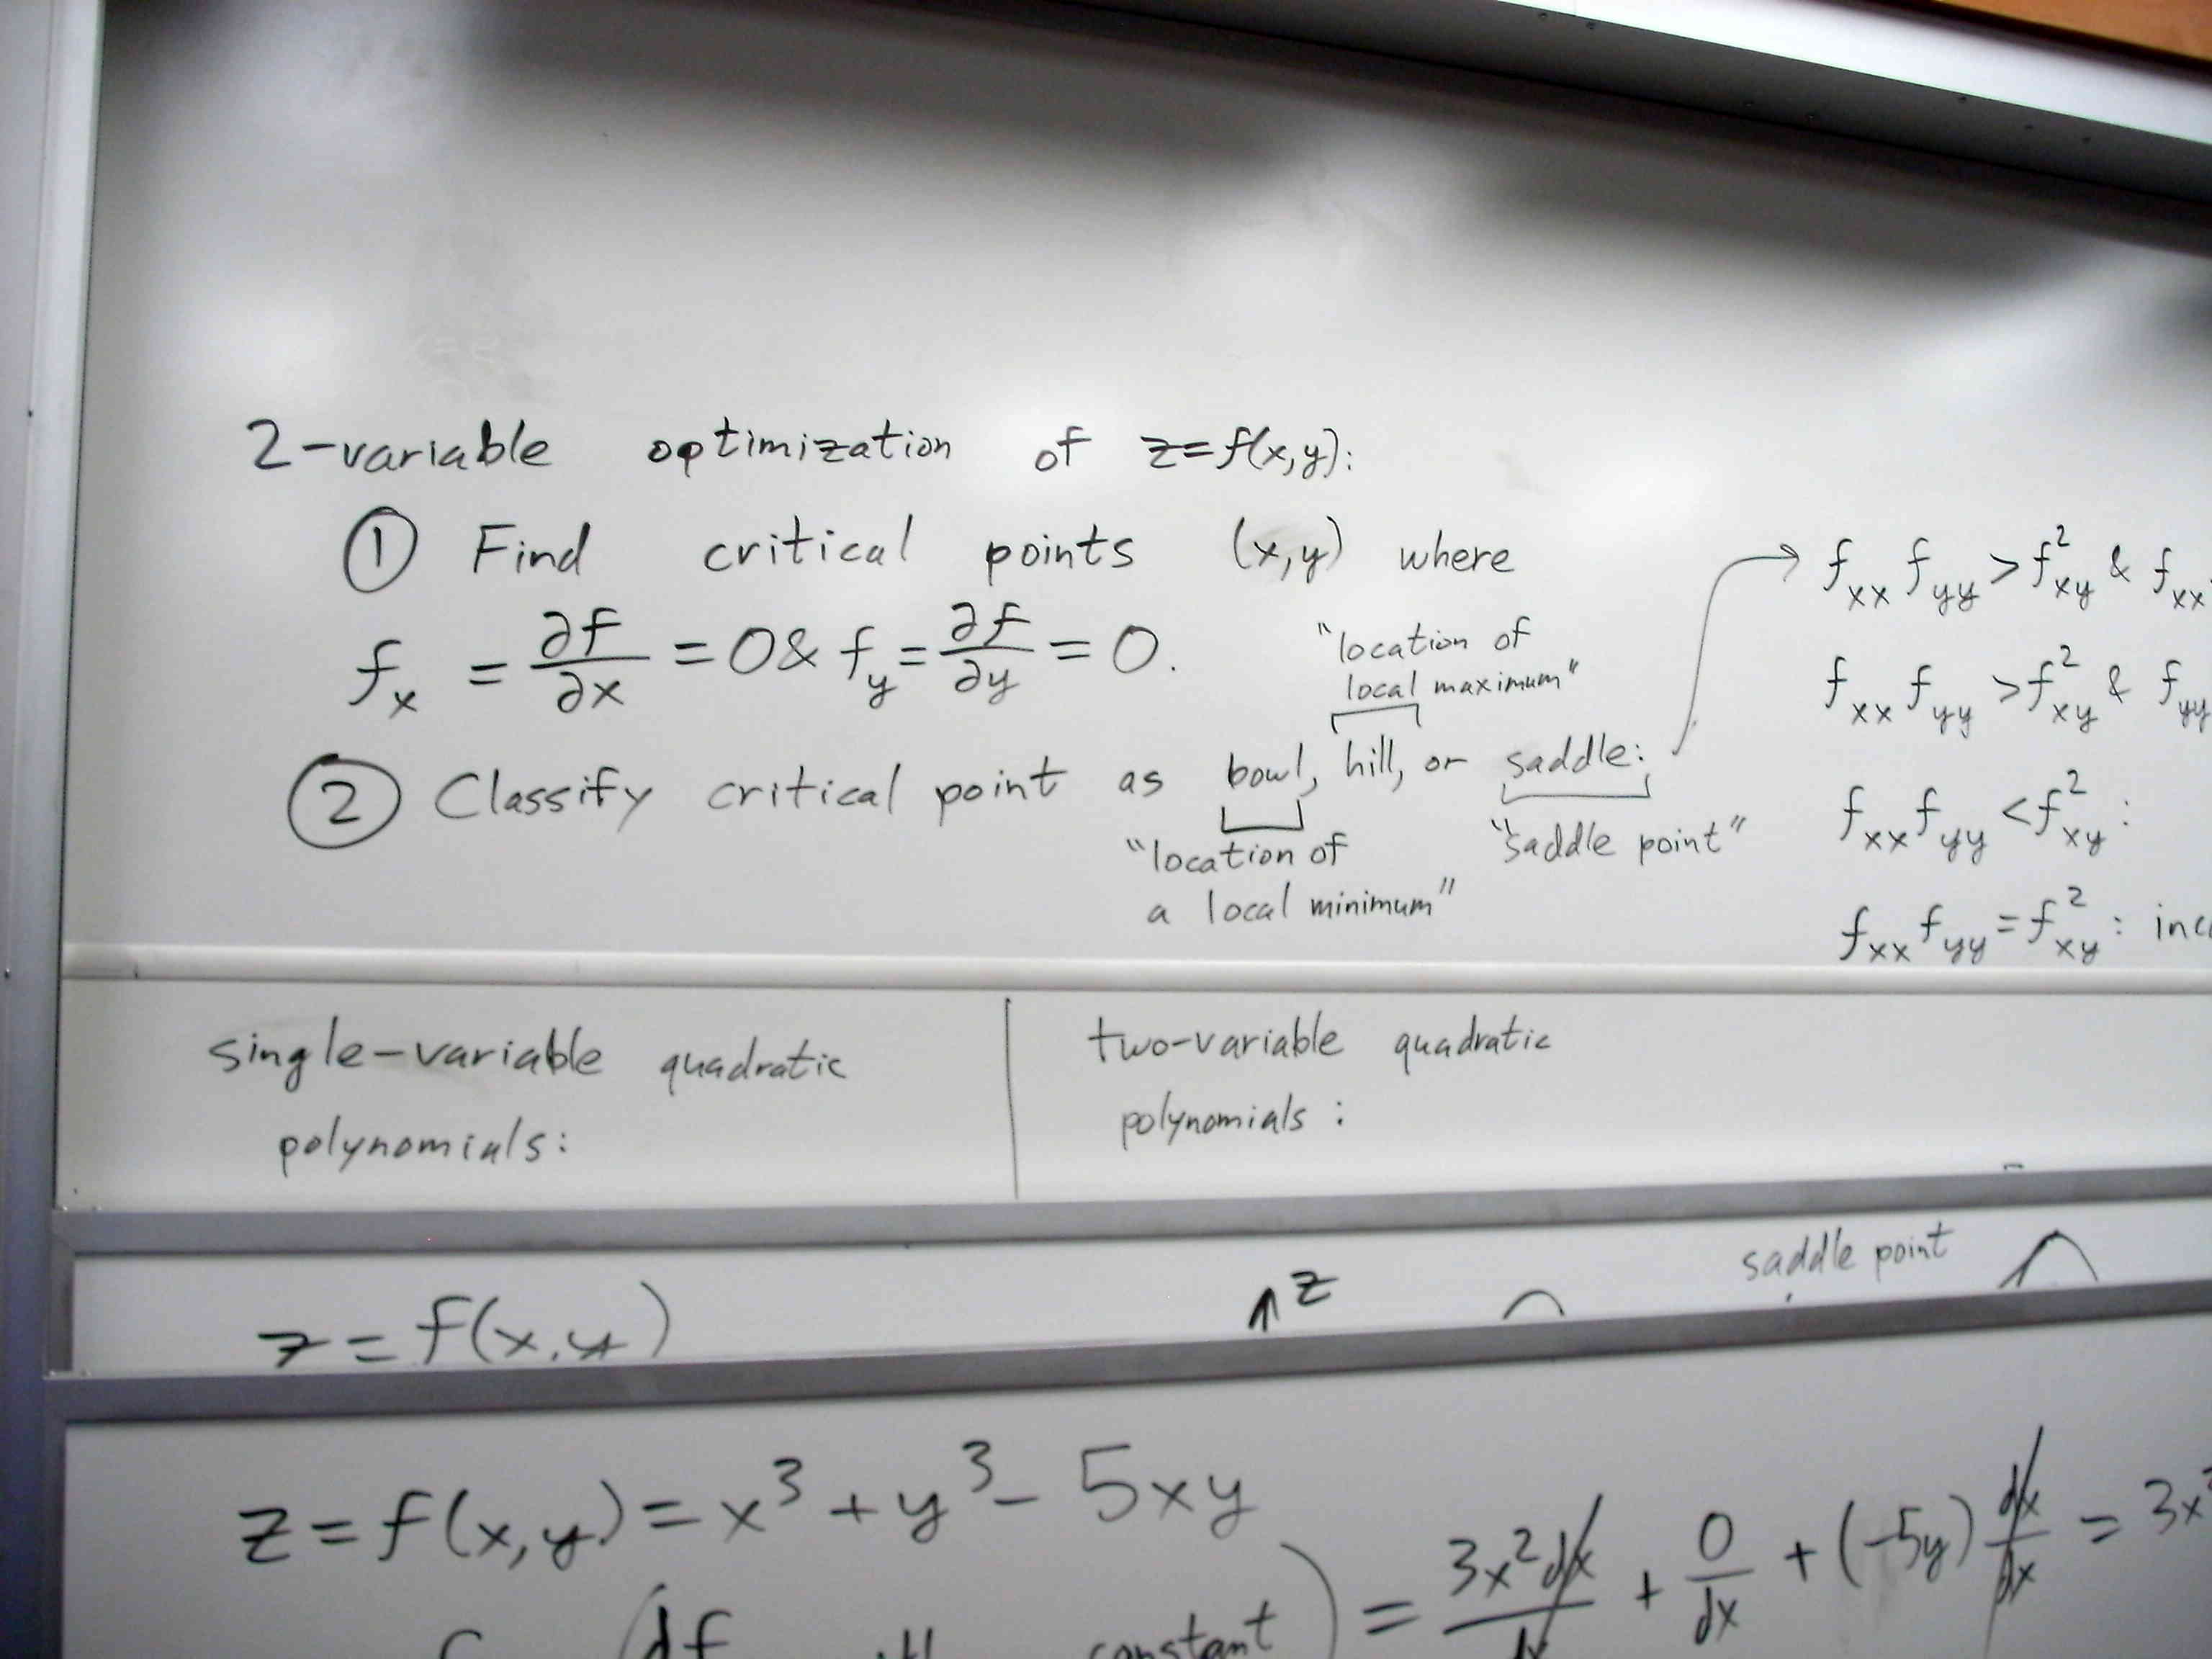 2-variable optimization of z=f(x,y):
① Find critical points (x,y) where
f_x = ∂f/∂x = 0 & f_y = ∂f/∂y = 0.
"location of
local maximum"
② Classify critical point as bowl, hill, or saddle:
"location of
a local minimum"
"saddle point"
f_xx f_yy > f²_xy & f_xx
f_xx f_yy > f²_xy & f_yy
f_xx f_yy < f²_xy :
f_xx f_yy = f²_xy :
single-variable quadratic
polynomials:
two-variable quadratic
polynomials :
z = f(x,y)
z
saddle point
z = f(x,y) = x³ + y³ - 5xy
df constant ) = 3x²dx/dx + 0/dx + (-5y) dx/dx = 3x²